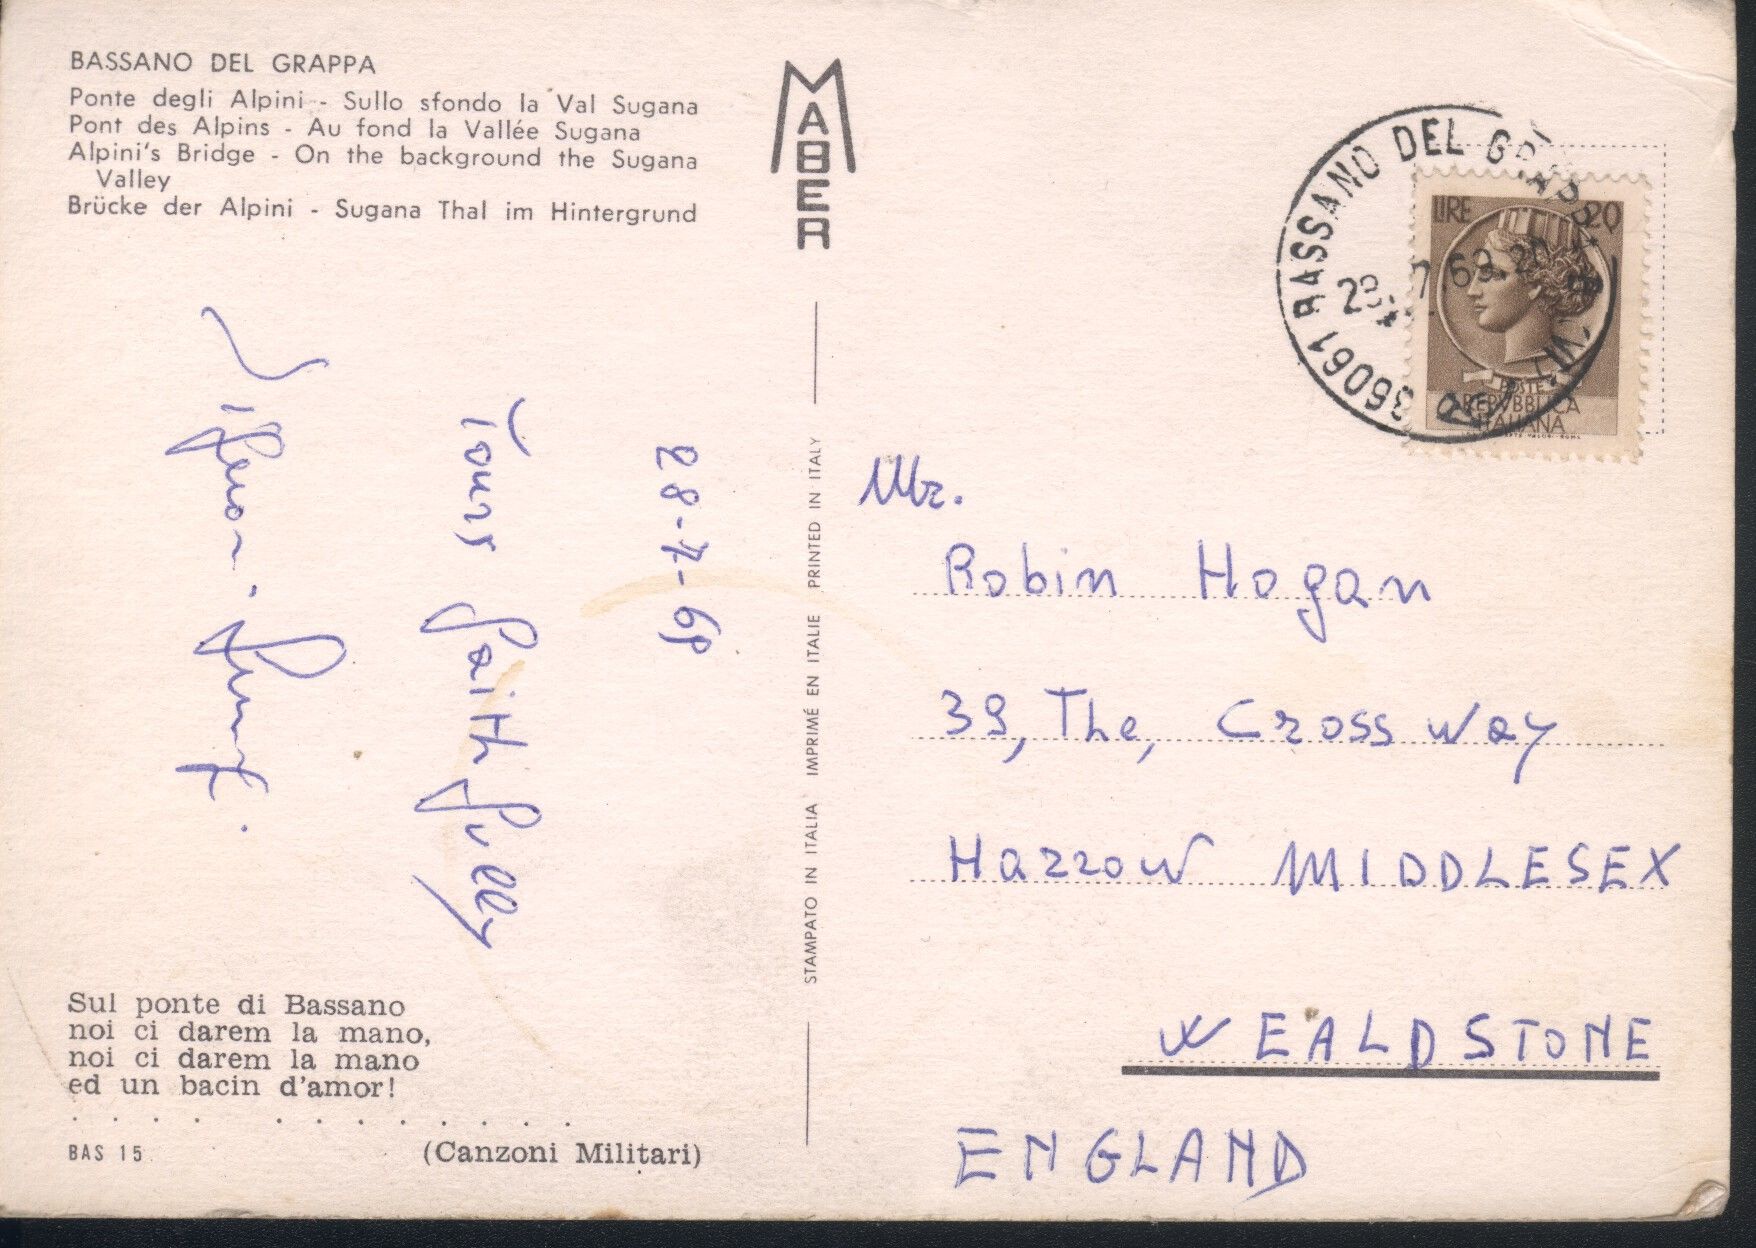 BASSANO DEL GRAPPA
Ponte degli Alpini - Sullo sfondo la Val Sugana
Pont des Alpins - Au fond la Vallée Sugana
Alpini's Bridge - On the background the Sugana
Valley
Brücke der Alpini - Sugana Thal im Hintergrund
MABER
28-7-69
Yours faithfully
Sul ponte di Bassano
noi ci darem la mano,
noi ci darem la mano
ed un bacin d'amor!
. . . . . . . . . . . .
BAS 15
(Canzoni Militari)
STAMPATO IN ITALIA IMPRIMÉ EN ITALIE PRINTED IN ITALY
36061 BASSANO DEL GRAPPA
LIRE 20
POSTE
REPVBBLICA
ITALIANA
Mr.
Robin Hogan
39, The, Cross way
Harrow MIDDLESEX
WEALDSTONE
ENGLAND